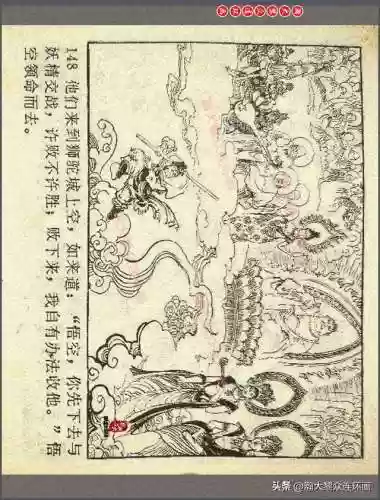 148 他们来到狮驼城上空，如来道：“悟空，你先下去与
妖精交战，许败不许胜；败下来，我自有办法收他。”悟
空领命而去。
头条 @瀚大黎众连环画